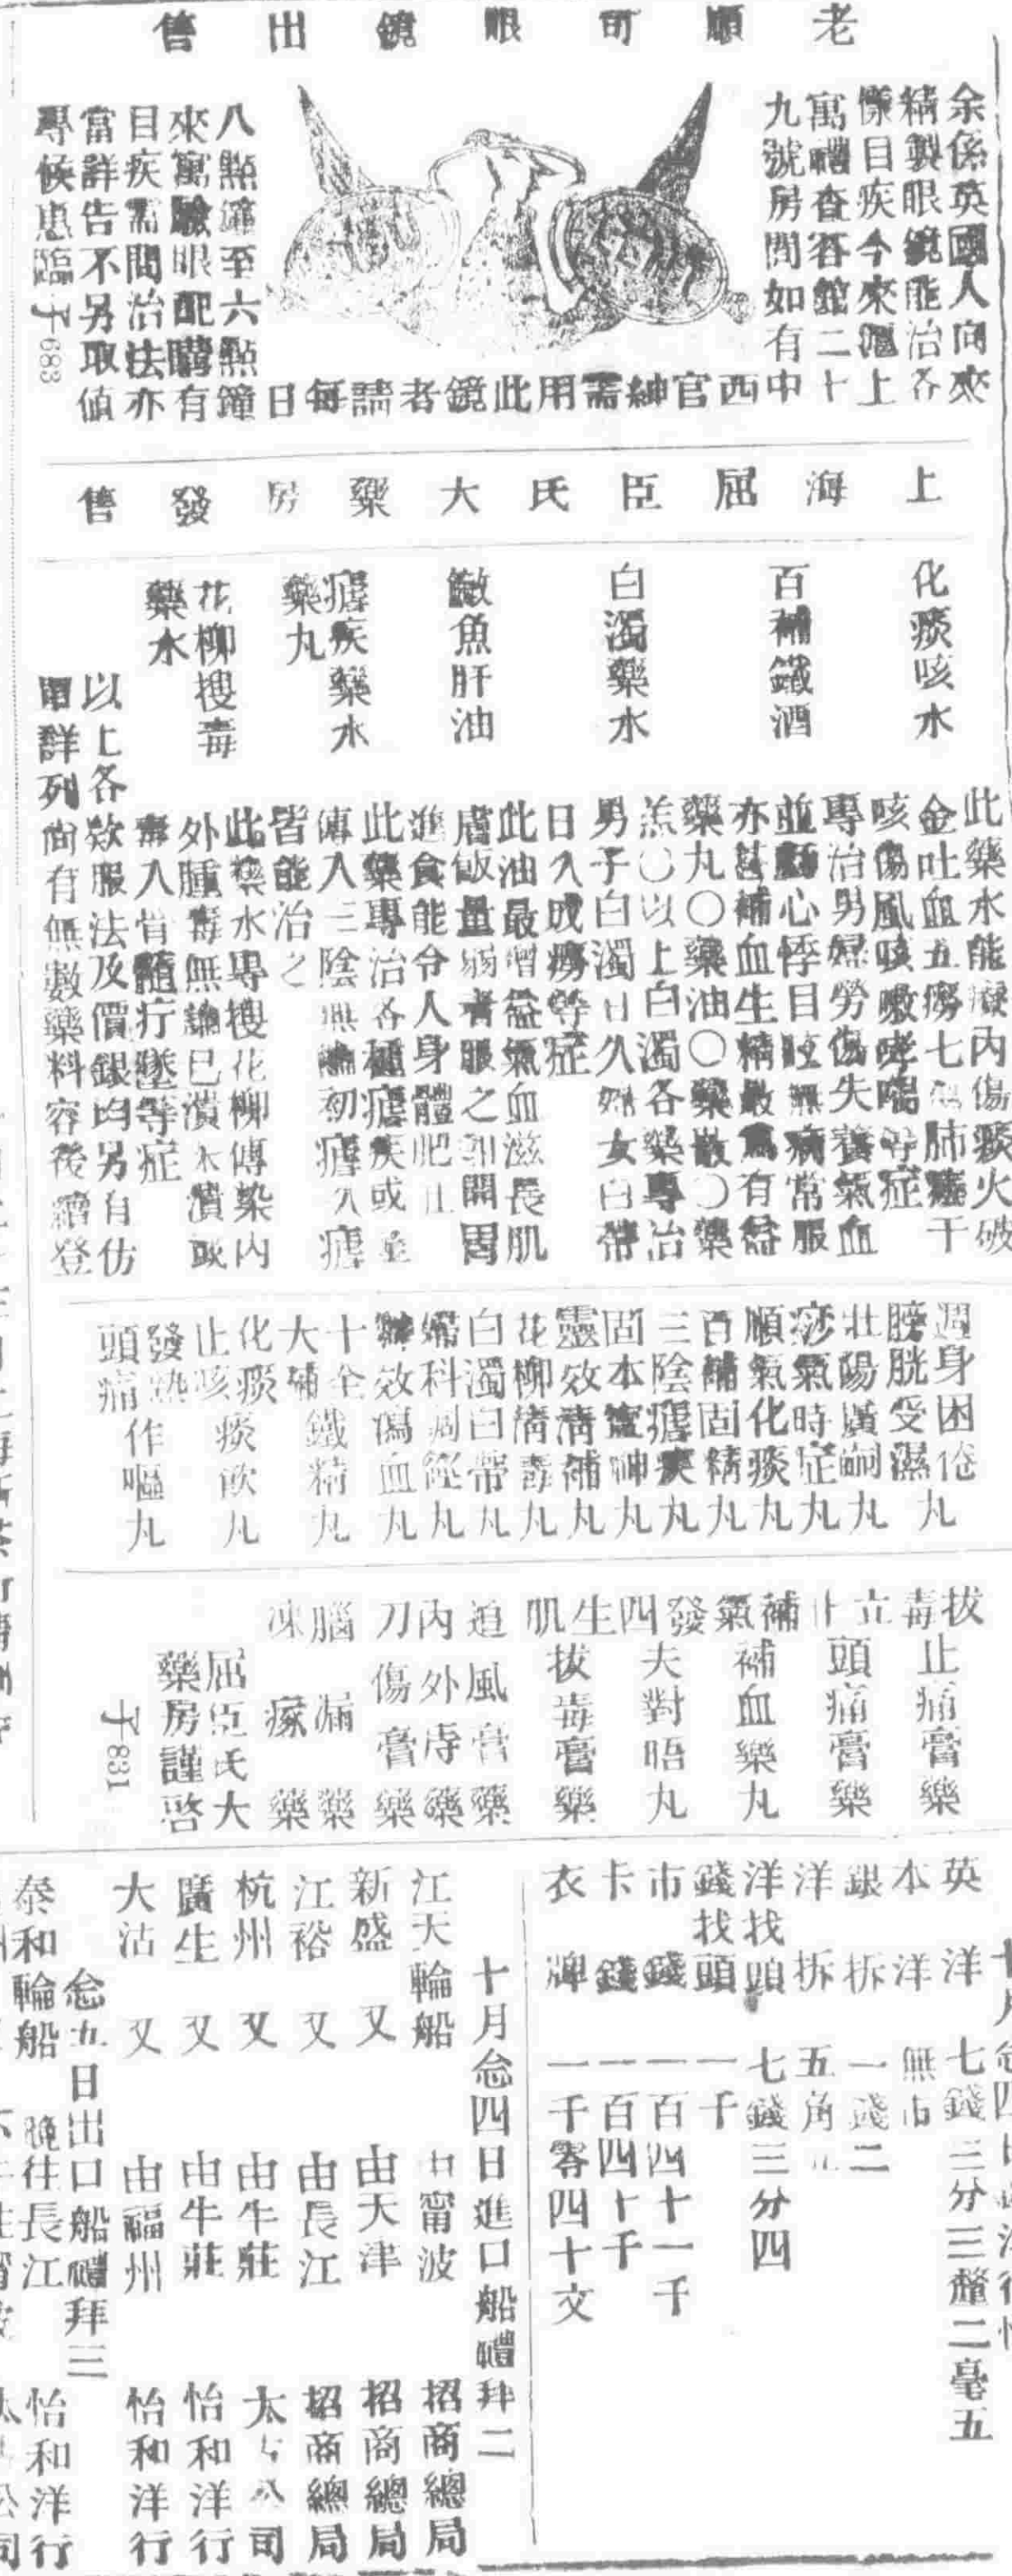 老順可眼鏡出售
余係英國人向來
精製眼鏡能治各
樣目疾今來滬上
寓禮查客館二十
九號房間如有中
西官紳需用此鏡者請每日
八點鐘至六點鐘
來寓驗眼配購有
目疾需問治法亦
當詳告不另取值
專候惠臨 子683
上海屈臣氏大藥房發售
化痰咳水
此藥水能凝內傷痰火破
金吐血五癆七傷肺痿干
咳傷風咳嗽哮喘等症
百補鐵酒
專治男婦勞傷失養氣血
並顫心悸目眩無病常服
亦甚補血生精最爲有益
白濁藥水
藥丸〇藥油〇藥散〇藥
羔〇以上白濁各藥專治
男子白濁日久婦女白帶
日久成癆等症
鰵魚肝油
此油最增益氣血滋長肌
膚飯量弱者服之能開胃
進食能令人身體肥壯
瘧疾藥水
藥丸
此藥專治各種瘧疾或重
傳入三陰無論初瘧久瘧
皆能治之
花柳搜毒
藥水
此藥水專搜花柳傳染內
外腫毒無論已潰未潰或
毒入骨髓疔墜等症
以上各欵服法及價銀均另有仿
單詳列尙有無數藥料容後續登
週身困倦丸
膀胱受濕
壯陽廣嗣丸
痧氣時症丸
順氣化痰丸
百補固精丸
三陰瘧疾丸
固本寗神丸
靈效清補丸
花柳清毒丸
白濁白帶丸
婦科調經丸
神效瀉血丸
十全
大補鐵精丸
化痰
止咳痰飲丸
發熱
頭痛作嘔丸
拔毒止痛膏藥
立止頭痛膏藥
補氣補血藥丸
發四夫對晤丸
生肌拔毒膏藥
追風膏藥
內外痔藥
刀傷膏藥
腦漏藥
凍瘃藥
屈臣氏大
藥房謹啓
子831
英洋 七錢三分三釐二毫五
本洋 無市
銀拆 一錢二
洋拆 五角
洋找頭 七錢三分四
錢找頭 一千
市錢 一百四十一千
卡錢 一百四十千
衣牌 一千零四十文
十月念四日進口船禮拜二
江天輪船 由甯波 招商總局
新盛 又 由天津 招商總局
江裕 又 由長江 招商總局
杭州 又 由牛莊 太古公司
廣生 又 由牛莊 怡和洋行
大沽 又 由福州 怡和洋行
念五日出口船禮拜三
泰和輪船 晚往長江 怡和洋行